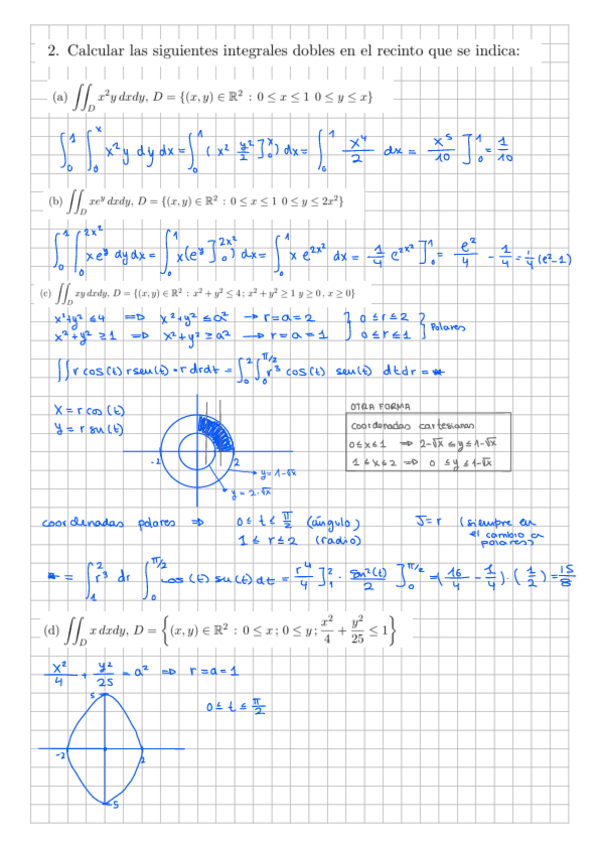 2. Calcular las siguientes integrales dobles en el recinto que se indica:
(a) ∬_D x²y dxdy, D = {(x, y) ∈ ℝ² : 0 ≤ x ≤ 1 0 ≤ y ≤ x}
∫₀¹ ∫₀ˣ x²y dy dx = ∫₀¹ (x² y²/2]₀ˣ) dx = ∫₀¹ x⁴/2 dx = x⁵/10 ]₀¹ = 1/10
(b) ∬_D xe^y dxdy, D = {(x, y) ∈ ℝ² : 0 ≤ x ≤ 1 0 ≤ y ≤ 2x²}
∫₀¹ ∫₀^{2x²} xe^y dy dx = ∫₀¹ x(e^y]₀^{2x²}) dx = ∫₀¹ x e^{2x²} dx = 1/4 e^{2x²}]₀¹ = e²/4 - 1/4 = 1/4 (e²-1)
(c) ∬_D xy dxdy, D = {(x, y) ∈ ℝ² : x² + y² ≤ 4; x² + y² ≥ 1 y ≥ 0, x ≥ 0}
x²+y² ≤ 4 ⇒ x²+y² ≤ a² → r=a=2 } 0 ≤ r ≤ 2 }
x²+y² ≥ 1 ⇒ x²+y² ≥ a² → r=a=1 } 0 ≤ r ≤ 1 } Polares
∬ r cos(t) r sen(t) · r dr dt = ∫₀² ∫₀^{π/2} r³ cos(t) sen(t) dt dr = *
x = r cos(t)
y = r su(t)
-1
2
y = 1-√x
y = 2-√x
OTRA FORMA
coordenadas cartesianas
0≤x≤1 ⇒ 2-√x ≤ y ≤ 1-√x
1≤x≤2 ⇒ 0 ≤ y ≤ 1-√x
coordenadas polares ⇒ 0 ≤ t ≤ π/2 (ángulo) J=r (siempre en
1 ≤ r ≤ 2 (radio) el cambio a polares)
* = ∫₁² r³ dr ∫₀^{π/2} cos(t) su(t) dt = r⁴/4 ]₁² · sen²(t)/2 ]₀^{π/2} = (16/4 - 1/4) · (1/2) = 15/8
(d) ∬_D x dxdy, D = {(x, y) ∈ ℝ² : 0 ≤ x ; 0 ≤ y ; x²/4 + y²/25 ≤ 1}
x²/4 + y²/25 = a² ⇒ r=a=1
0 ≤ t ≤ π/2
5
-2
2
-5